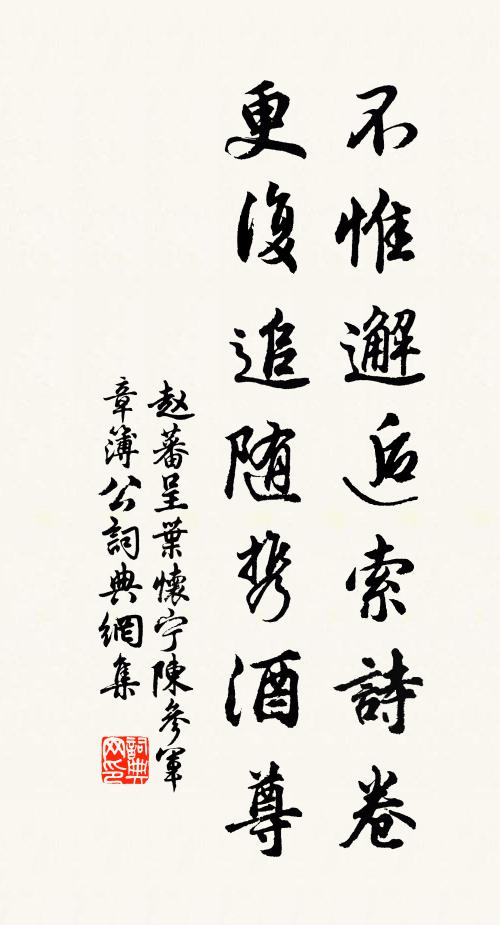 不惟邂逅索詩卷
更復追随携酒尊
赵蕃呈葉懷宁陳參軍
章簿公詞典網集
詞典网印